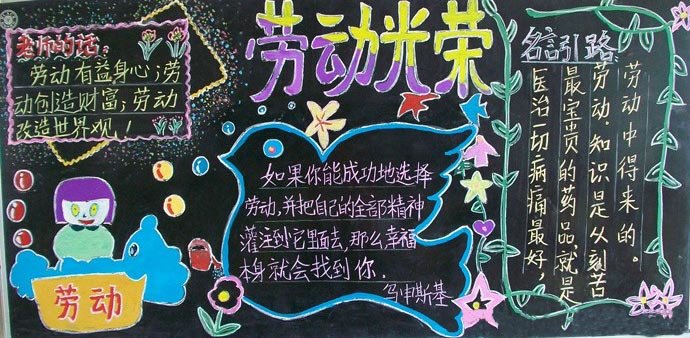 劳动光荣
老师的话：
劳动有益身心；劳
动创造财富；劳动
改造世界观！
劳动
如果你能成功地选择
劳动,并把自己的全部精神
灌注到它里面去,那么幸福
本身就会找到你.
乌申斯基
名言引路
医治一切病痛最好,
最宝贵的药品,就是
劳动.知识是从刻苦
劳动中得来的。